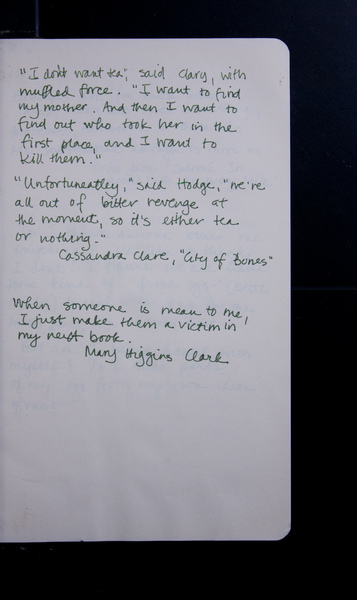 "I don't want tea", said Clary, with
muffled force. "I want to find
my mother. And then I want to
find out who took her in the
first place, and I want to
kill them."
"Unfortuneatley," said Hodge, "we're
all out of bitter revenge at
the moment, so it's either tea
or nothing."
Cassandra Clare, "City of Bones"
When someone is mean to me,
I just make them a victim in
my next book.
Mary Higgins Clark